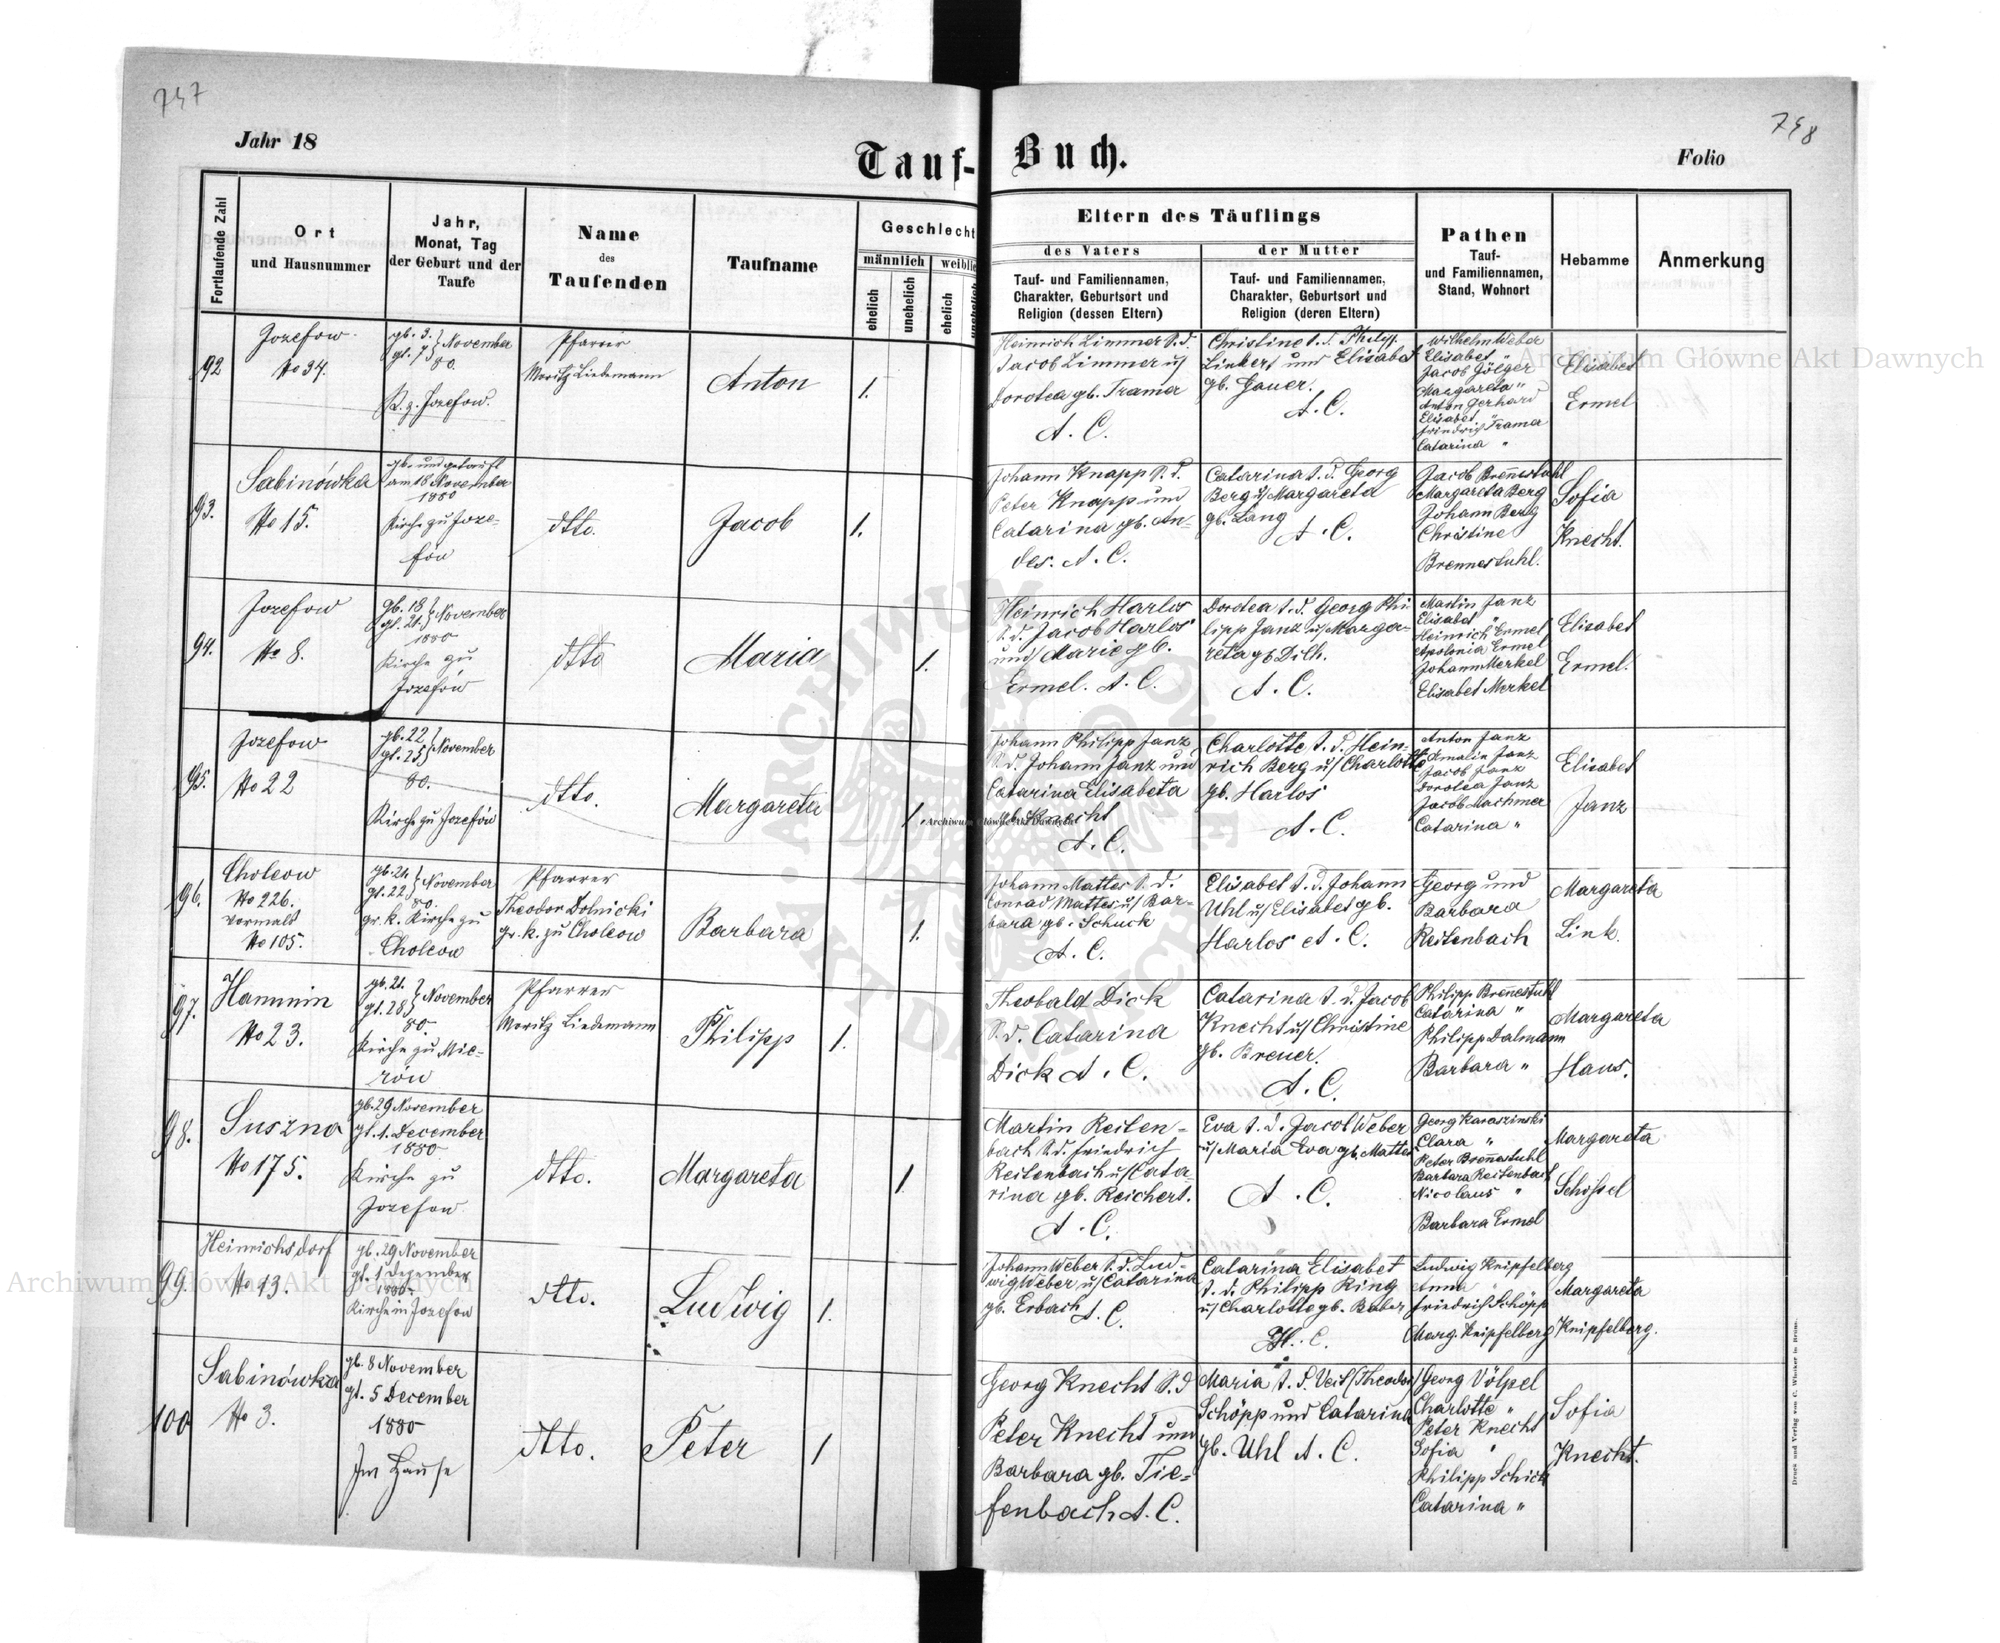 747
748
Jahr 18
Tauf-Buch.
Folio
Fortlaufende Zahl
Ort
und Hausnummer
Jahr,
Monat, Tag
der Geburt und der
Taufe
Name
des
Taufenden
Taufname
Geschlecht
männlich
ehelich
unehelich
ehelich
Eltern des Täuflings
des Vaters
Tauf- und Familiennamen,
Charakter, Geburtsort und
Religion (dessen Eltern)
der Mutter
Tauf- und Familiennamen,
Charakter, Geburtsort und
Religion (deren Eltern)
Pathen
Tauf-
und Familiennamen,
Stand, Wohnort
Hebamme
Anmerkung
92
Jozefow
No 34.
gb. 3. } November
gt. 7 } 80.
K. z. Jozefow.
Pfarrer
Moritz Liedemann
Anton
1.
Heinrich Limmer S. d.
Jacob Limmer u/
Dorotea gb. Trama
A. C.
Christine t. d. Philipp
Linkert und Elisabet
gb. Gauer.
A. C.
Wilhelm Weber
Elisabet "
Jacob Gölger
Margareta "
Anton Gerhard
Elisabet "
Friedrich Trama
Catarina "
Elisabet
Ermel
93.
Sabinówka
No 15.
gb. und getauft
am 18 November
1880
Kirche zu Joze-
fów
dtto.
Jacob
1.
Johann Knapp S. d.
Peter Knapp und
Catarina gb. An-
des. A. C.
Catarina t. d. Georg
Berg u/ Margareta
gb. Lang
A. C.
Jacob Brennestuhl
Margareta Berg
Johann Berg
Christine
Brennestuhl.
Sofia
Knecht.
94.
Jozefow
No 8.
gb. 18 } November
gt. 21. }
1880
Kirche zu
Jozefów
dtto
Maria
1.
Heinrich Harlos
S. d. Jacob Harlos
und Marie gb.
Ermel. A. C.
Dorotea t. d. Georg Phi-
lipp Janz u/ Marga-
reta gb Dilh.
A. C.
Martin Janz
Elisabet "
Heinrich Ermel
Apolonia Ermel
Johann Merkel
Elisabet Merkel
Elisabet
Ermel.
95.
Jozefow
No 22
gb. 22 } November
gt. 25 }
80.
Kirche zu Jozefów
dtto.
Margareta
1.
Johann Philipp Janz
S. d. Johann Janz und
Catarina Elisabeta
gb. Knecht
A. C.
Charlotte t. d. Hein-
rich Berg u/ Charlotte
gb. Harlos
A. C.
Anton Janz
Amalie Janz
Jacob Janz
Dorotea Janz
Jacob Machmer
Catarina "
Elisabet
Janz
96.
Choleow
No 226.
vormals
No 105.
gb. 21. } November
gt. 22. } 80.
gr. k. Kirche zu
Choleow
Pfarrer
Theodor Dolnicki
gr. k. zu Choleow
Barbara
1.
Johann Mattes S. d.
Conrad Mattes u/ Bar-
bara gb. Schuck
A. C.
Elisabet t. d. Johann
Uhl u/ Elisabet gb.
Harlos A. C.
Georg und
Barbara
Reitenbach
Margareta
Link.
97.
Hanunin
No 23.
gb. 21. } November
gt. 28 }
80.
Kirche zu Mie-
rów
Pfarrer
Moritz Liedemann
Philipp
1.
Theobald Dick
S. d. Catarina
Dick A. C.
Catarina t. d. Jacob
Knecht u/ Christine
gb. Breuer.
A. C.
Philipp Brennestuhl
Catarina "
Philipp Dalmann
Barbara "
Margareta
Haus.
98.
Suszna
No 175.
gb. 29 November
gt. 1. December
1880
Kirche zu
Jozefow
dtto.
Margareta
1.
Martin Reiten-
bach S. d. Friedrich
Reitenbach u/ Cata-
rina gb. Reichert.
A. C.
Eva t. d. Jacob Weber
u/ Maria Eva gb. Mattes
A. C.
Georg Karaszinski
Clara "
Peter Brennestuhl
Barbara Reitenbach
Nicolaus "
Barbara Ermel
Margareta
Schissel
99.
Heinrichsdorf
No 13.
gb. 29 November
gt. 1 Dezember
1880
Kirche in Jozefow
dtto.
Ludwig
1.
Johann Weber S. d. Lud-
wig Weber u/ Catarina
gb. Erbach A. C.
Catarina Elisabet
t. d. Philipp Ring
u/ Charlotte gb. Baber
H. C.
Ludwig Knipfelberg
Anna "
Friedrich Schöpp
Marg. Knipfelberg
Margareta
Knipfelberg.
100
Sabinówka
No 3.
gb. 8 November
gt. 5 December
1880
Im Hause
dtto.
Peter
1
Georg Knecht S. d
Peter Knecht und
Barbara gb. Tie-
fenbach A. C.
Maria t. d. Veit (Theodor)
Schöpp und Catarina
gb. Uhl A. C.
Georg Völpel
Charlotte "
Peter Knecht
Sofia "
Philipp Schick
Catarina "
Sofia
Knecht.
Druck und Verlag von C. Winiker in Brünn.
Archiwum Główne Akt Dawnych
Archiwum Główne Akt Dawnych
Archiwum Główne Akt Dawnych